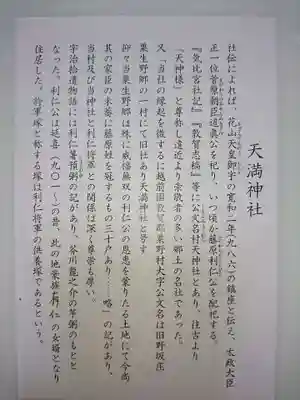 天満神社
社伝によれば、花山天皇御宇の寛和二年(九八六)の鎮座と伝え、太政大臣
正一位菅原朝臣道真公を祀り、いつ頃か藤原利仁公を相祀する。
『気比宮社記』『敦賀志稿』等に公文名村天神社とあり、往古より
「天神様」と尊称し遠近より崇敬者の多い郷土の名社であった。
又「当社の縁起を徴するに越前国敦賀郡粟野村大字公文名は旧野坂庄
粟生野郷の一村にて旧社あり天満神社と号す
抑々当粟生野郷は殊に威徳無双の利仁公の恩恵を蒙りたる土地にて今尚
其の家臣の末裔に藤原姓を冠するもの三十戸あり……略」の記があり、
当村及び当神社と利仁将軍との関係は深く尊崇も厚い。
宇治拾遺物語には利仁薯蕷粥の記があり、芥川龍之介の芋粥のもとと
なった。利仁公は延喜(九〇一〜)の昔、此の地業族有仁の女婿となり
住居した。将軍塚と称する塚は利仁将軍の供養塚であるという。